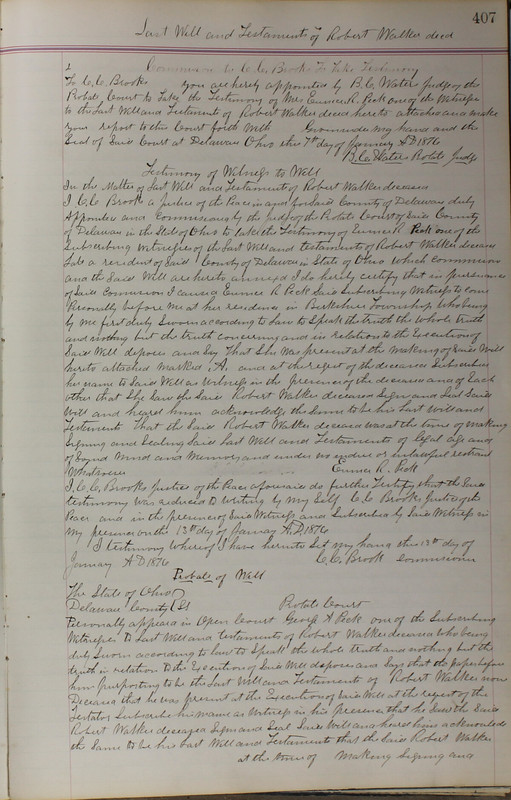 407
Last Will and Testaments of Robert Walker decd
Commission to C.C. Brook To Take Testimony
To C.C. Brooks you are hereby appointed by B.C. Waters Judge of the
Probate Court to Take the Testimony of Mrs Eunice R. Peck one of the Witnesses
to the Last Will and Testiment of Robert Walker decd hereto attached and make
your report to this Court forth With Given under my hand and the
Seal of Said Court at Delaware Ohio this 7th day of January AD 1876
B.C. Waters Probate Judge
Testimony of Witness to Will
In the Matter of Last Will and Testament of Robert Walker deceased
I C.C. Brook a Justice of the Peace in and for Said County of Delaware duly
Appointed and Commissioned by the Judge of the Probate Court of Said County
of Delaware in the State of Ohio to take the Testimony of Eunice R. Peck one of the
Subscribing Witnesses of the Last Will and testaments of Robert Walker deceased
late a resident of Said County of Delaware in State of Ohio Which commission
and the Said Will are hereto annexed I do hereby certify that in pursuance
of Said Commission I caused Eunice R. Peck Said Subscribing Witness to come
Personally before me at her residence in Berkshire Township who being
by me first duly Sworn according to Law to Speak the truth the whole truth
and nothing but the truth concerning and in relation to the Execution of
Said Will deposes and Say That She Was present at the making of Said Will
hereto attached marked, A, and at the request of the deceased Subscribed
her name to Said Will as Witness in the presence of the deceased and of Each
other that She Saw the Said Robert Walker deceased Sign and Seal Said
Will and heard him acknowledge the Same to be his Last Will and
Testament That the Said Robert Walker deceased was at the time of making
Signing and Sealing Said Last Will and Testaments of legal age and
of Sound Mind and Memory and under no undue or unlawful restraint
Whatsoever Eunice R. Peck
I, C.C. Brooks Justice of the Peace aforesaid do further Certify that the Said
testimony was reduced to Writing by my Self C.C. Brooks Justice of the
Peace and in the presence of Said Witness and Subscribed by Said Witness in
my presence on the 13th day of January A.D. 1876
I testimony Whereof I have hereunto Set my hand this 13th day of
January AD 1876 C.C. Brook Commissioner
Probate of Will
The State of Ohio
Delaware County Ss Probate Court
Personally appeared in Open Court George A Peck one of the Subscribing
Witnesses to Last Will and testaments of Robert Walker deceased who being
duly Sworn according to Law to Speak the whole truth and nothing but the
truth in relation to the Execution of Said Will deposes and Says that the paper before
him purporting to be the Last Will and Testaments of Robert Walker now
Deceased that he was present at the Execution of Said Will at the request of the
testator Subscribe his name as Witness in his presence that he Saw the Said
Robert Walker deceased Sign and Seal Said Will and heard him acknowledge
the Same to be his Last Will and Testaments that the Said Robert Walker
at the time of Making Signing and